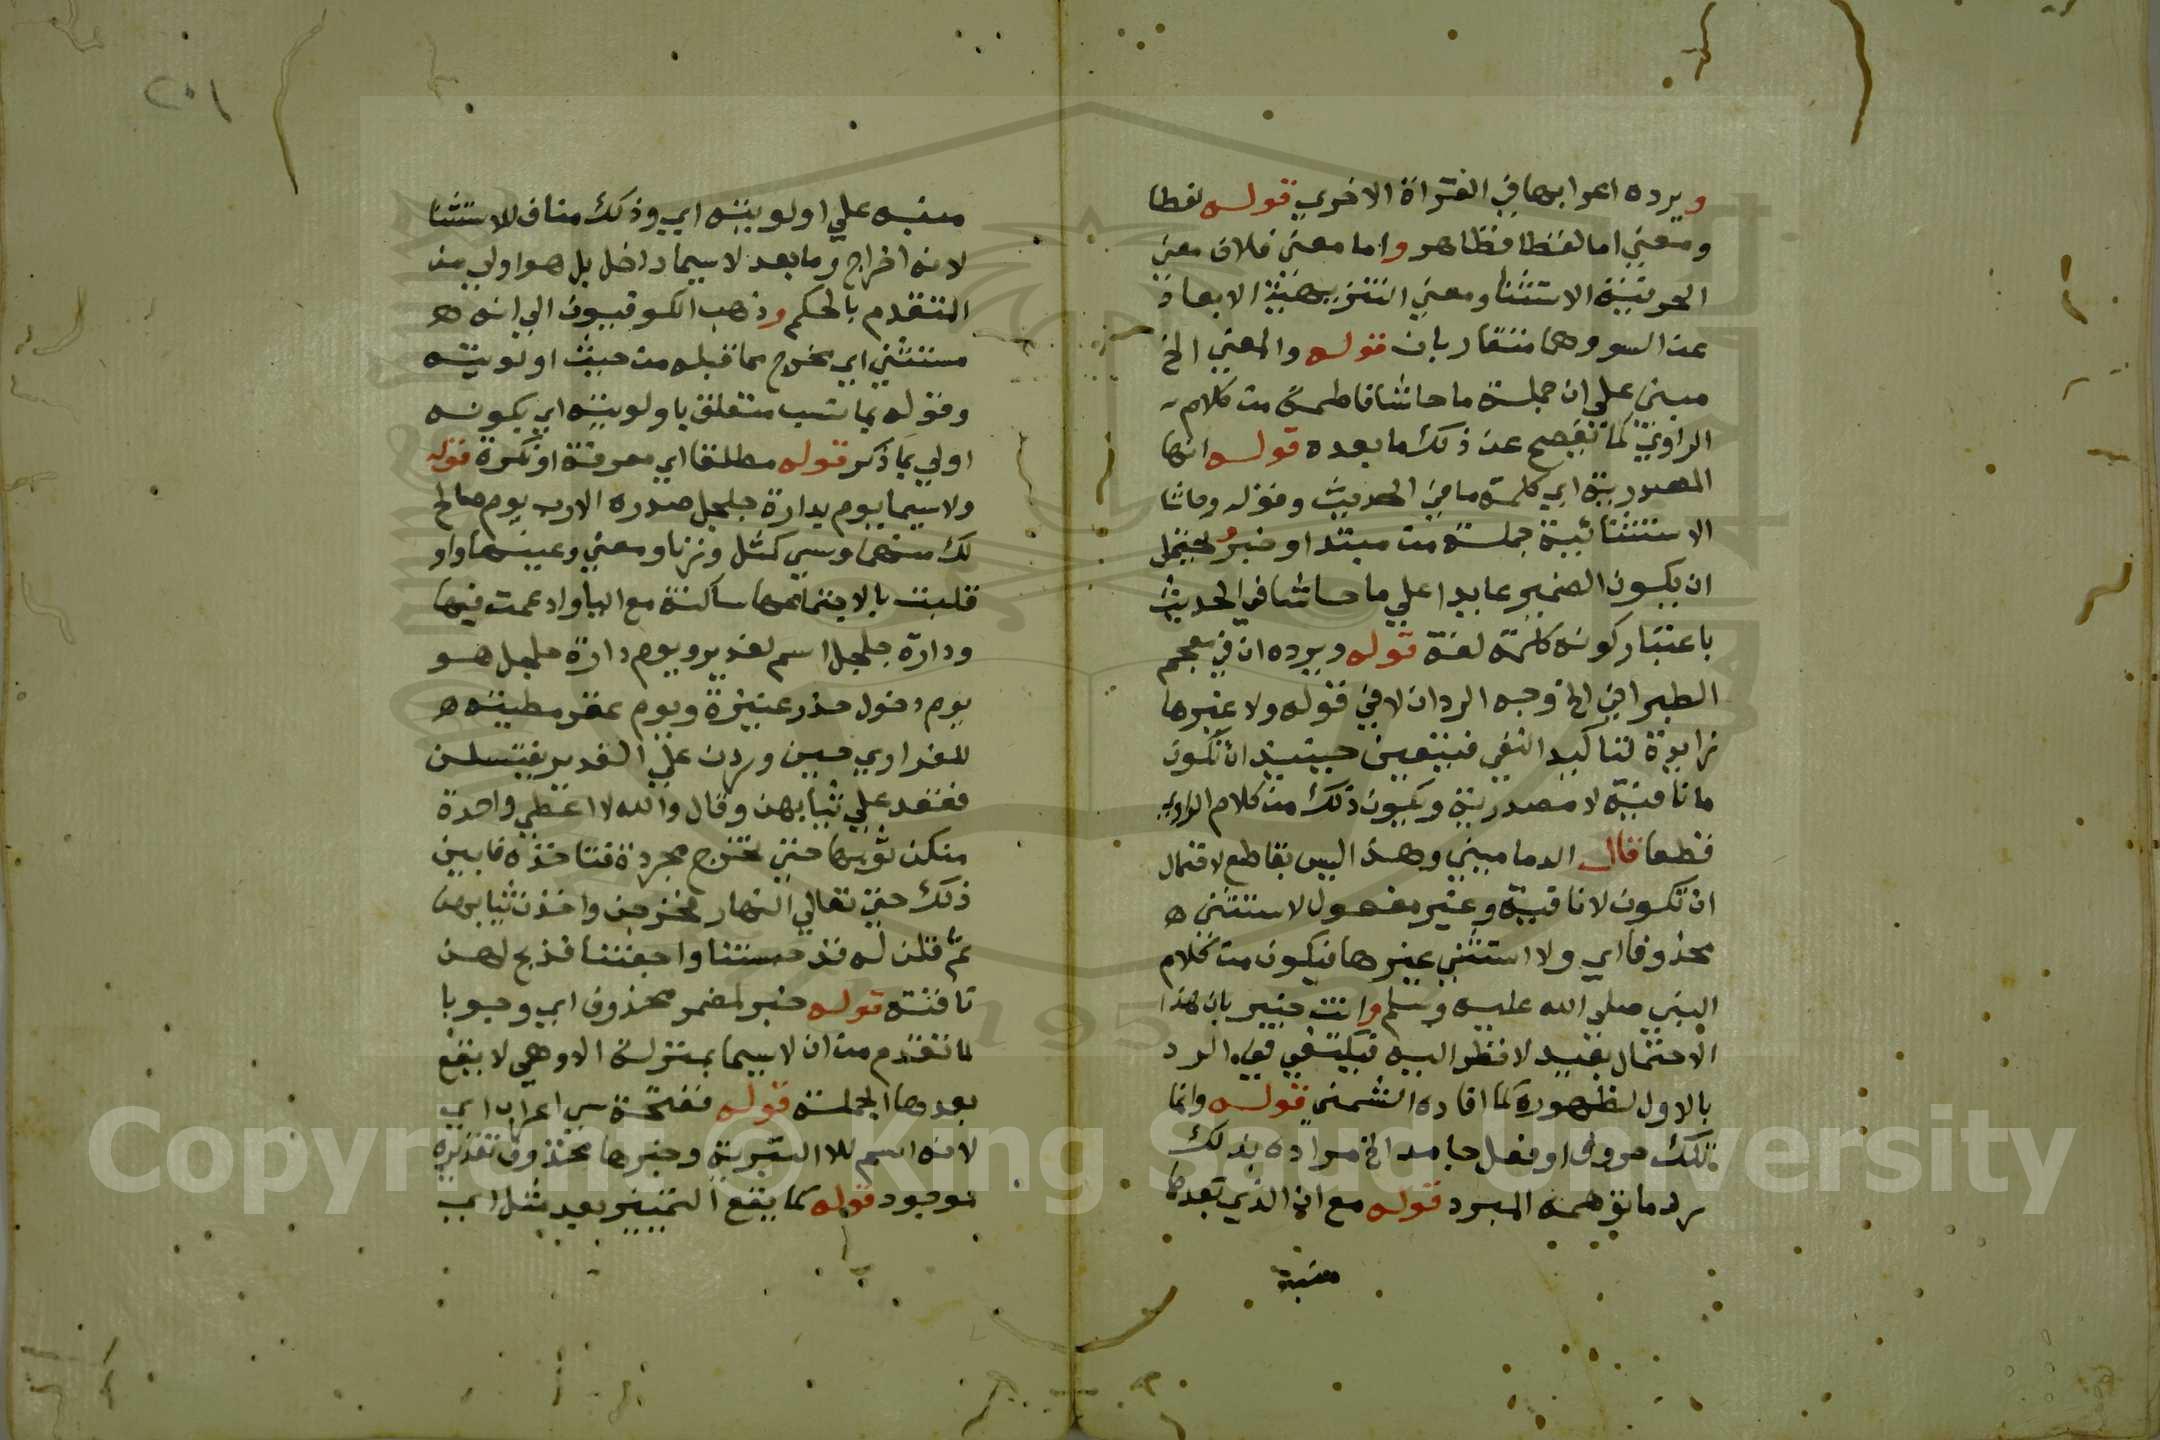 ويرده اعرابها في القراة الاخري قوله لفظا
ومعني اما لفظا فظاهر واما معني فلان معني
الحرفية الاستثنا ومعني التنزيهية الابعاد
عن السوء وهما متقاربان قوله والمعني الخ
مبني علي ان جملة ما حاشا فاطمة من كلام
الراوي كما تفصح عن ذلك ما بعده قوله انها
المصدرية اي كلمة ما في الحديث وقوله وحاشا
الاستثنائية جملة من مبتدا وخبر ويحتمل
ان يكون الضمير عايدا علي ما حاشا في الحديث
باعتبار كونه كلمة لغة قوله ويرده ان في معجم
الطبراني الخ وجه الرد ان لا في قوله ولا غيرها
زايدة لتاكيد النفي فيتعين حينيذ ان تكون
ما نافية لا مصدرية ويكون ذلك من كلام الراوي
قطعا قال الدماميني وهذا ليس بقاطع لاحتمال
ان تكون لا نافية وغير مفعول لاستثني
محذوفا اي ولا استثني غيرها فيكون من كلام
النبي صلي الله عليه وسلم وانت خبير بان هذا
الاحتمال بعيد لا نظر اليه فيكتفي في الرد
بالاول لظهوره كما افاده الشمني قوله وانما
تلك حرف او فعل جامد الخ مراده بذلك
رد ما توهمه المبرد قوله مع ان الذي بعدها
منبه
٢٠١
منبه علي اولويته اي وذلك مناف للاستثنا
لانه اخراج وما بعد لاسيما داخل بل هو اولي من
المتقدم بالحكم وذهب الكوفيون الي انه
مستثني اي مخرج مما قبله من حيث اولويته
وقوله بما نسب متعلق باولويته اي بكونه
اولي بما ذكر قوله مطلقا اي معرفة او نكرة قوله
ولاسيما يوم بدارة جلجل صدره الارب يوم صالح
لك منهما وسي كمثل وزنا ومعني وعينها واو
قلبت يا لاجتماعها ساكنة مع اليا وادغمت فيها
ودارة جلجل اسم لغدير ويوم دارة جلجل هو
يوم دخول خدر عنيزة ويوم عقر مطيته
للعذاري حين وردن علي الغدير يغتسلن
فقعد علي ثيابهن وقال والله لا اعطي واحدة
منكن ثوبها حتي تخرج مجردة فتاخذه فابين
ذلك حتي تعالي النهار فخرجن واخذن ثيابهن
ثم قلن له قد حبستنا واجعتنا فذبح لهن
ناقته قوله خبر لمضمر محذوف اي وجوبا
لما تقدم من ان لاسيما بمنزلة الا وهي لا يقع
بعدها الجملة قوله ففتحة سي اعراب اي
لانه اسم للا التبرية وخبرها محذوف تقديره
موجود قوله كما يقع التمييز بعد مثل اي
Copyright © King Saud University
1957